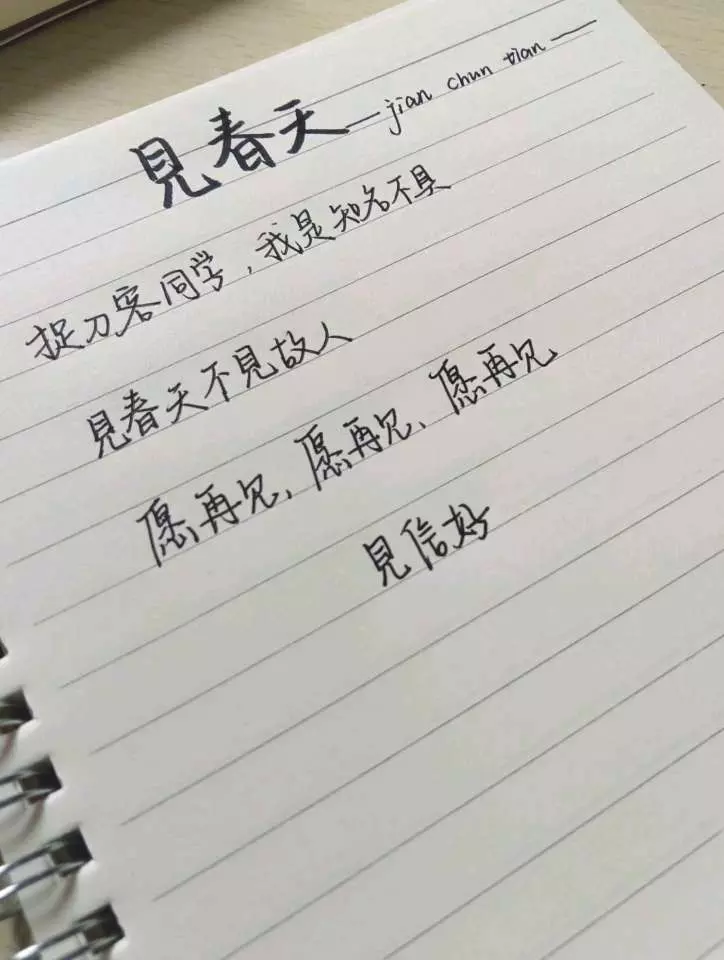 見春天—jian chun tian—
捉刀客同学，我是知名不具
見春天不見故人
愿再见、愿再见、愿再见
見信好